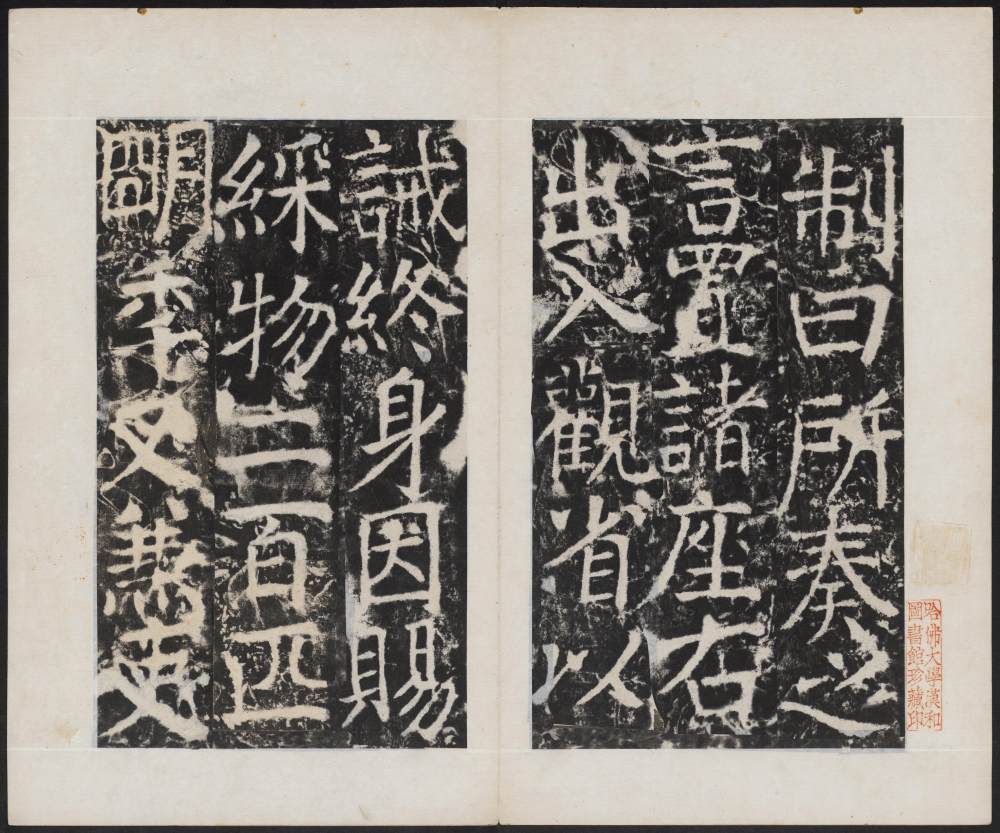 制曰所奏之
言置諸座右
出入觀省以
誡終身因賜
綵物三百匹
明年又兼吏
哈佛大學漢和
圖書館珍藏印